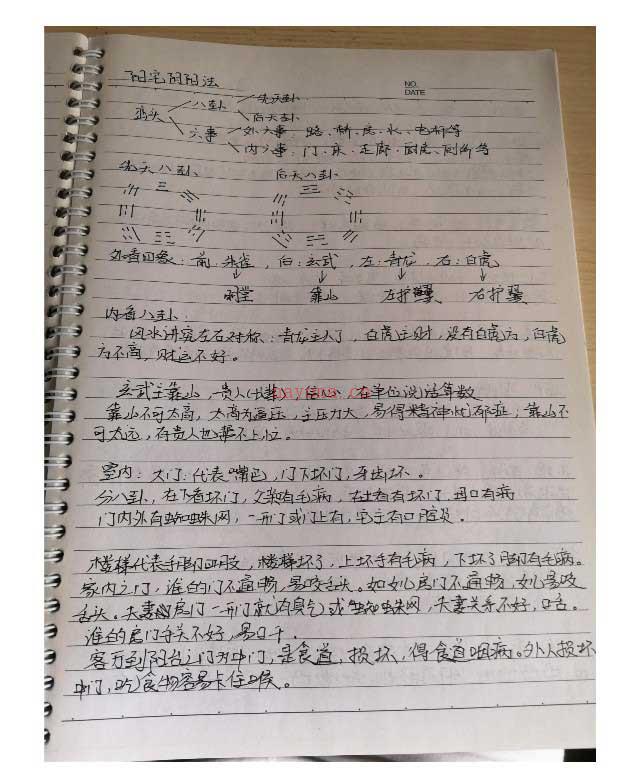 阳宅阴阳法
NO.
DATE
峦头 八卦 先天卦
后天卦
六事 外六事：路、桥、房、水、电杆等
内六事：门、床、走廊、厨房、厕所等
先天八卦 后天八卦
外看四象：前：朱雀，后：玄武，左：青龙，右：白虎
明堂 靠山 左护翼 右护翼
内看八卦：
风水讲究左右对称：青龙主人丁，白虎主财，没有白虎方，白虎
方不高，财运不好。
玄武主靠山，贵人(长辈)，信心，在单位说话算数
靠山不可太高，太高为高压，主压力大，易得精神忧郁症；靠山不
可太远，有贵人也帮不上忙。
室内：大门：代表嘴巴，门下坏门，牙齿坏。
分八卦，在下看坏门，父亲有毛病，在上看有坏门，母口有病
门内外有蜘蛛网，一开门或门上有，宅主有口腔炎。
楼梯代表手脚四肢，楼梯坏了，上坏手有毛病，下坏了脚有毛病。
家内之门，谁的门不通畅，易咬舌头。如女儿房门不通畅，女儿易咬
舌头。夫妻房门一开门就有臭气或蜘蛛网，夫妻关系不好，口舌。
谁的房门开关不好，易口干。
客厅到阳台之门为中门，是食道，损坏，得食道咽病。外人损坏
中门，吃食物容易卡住喉。